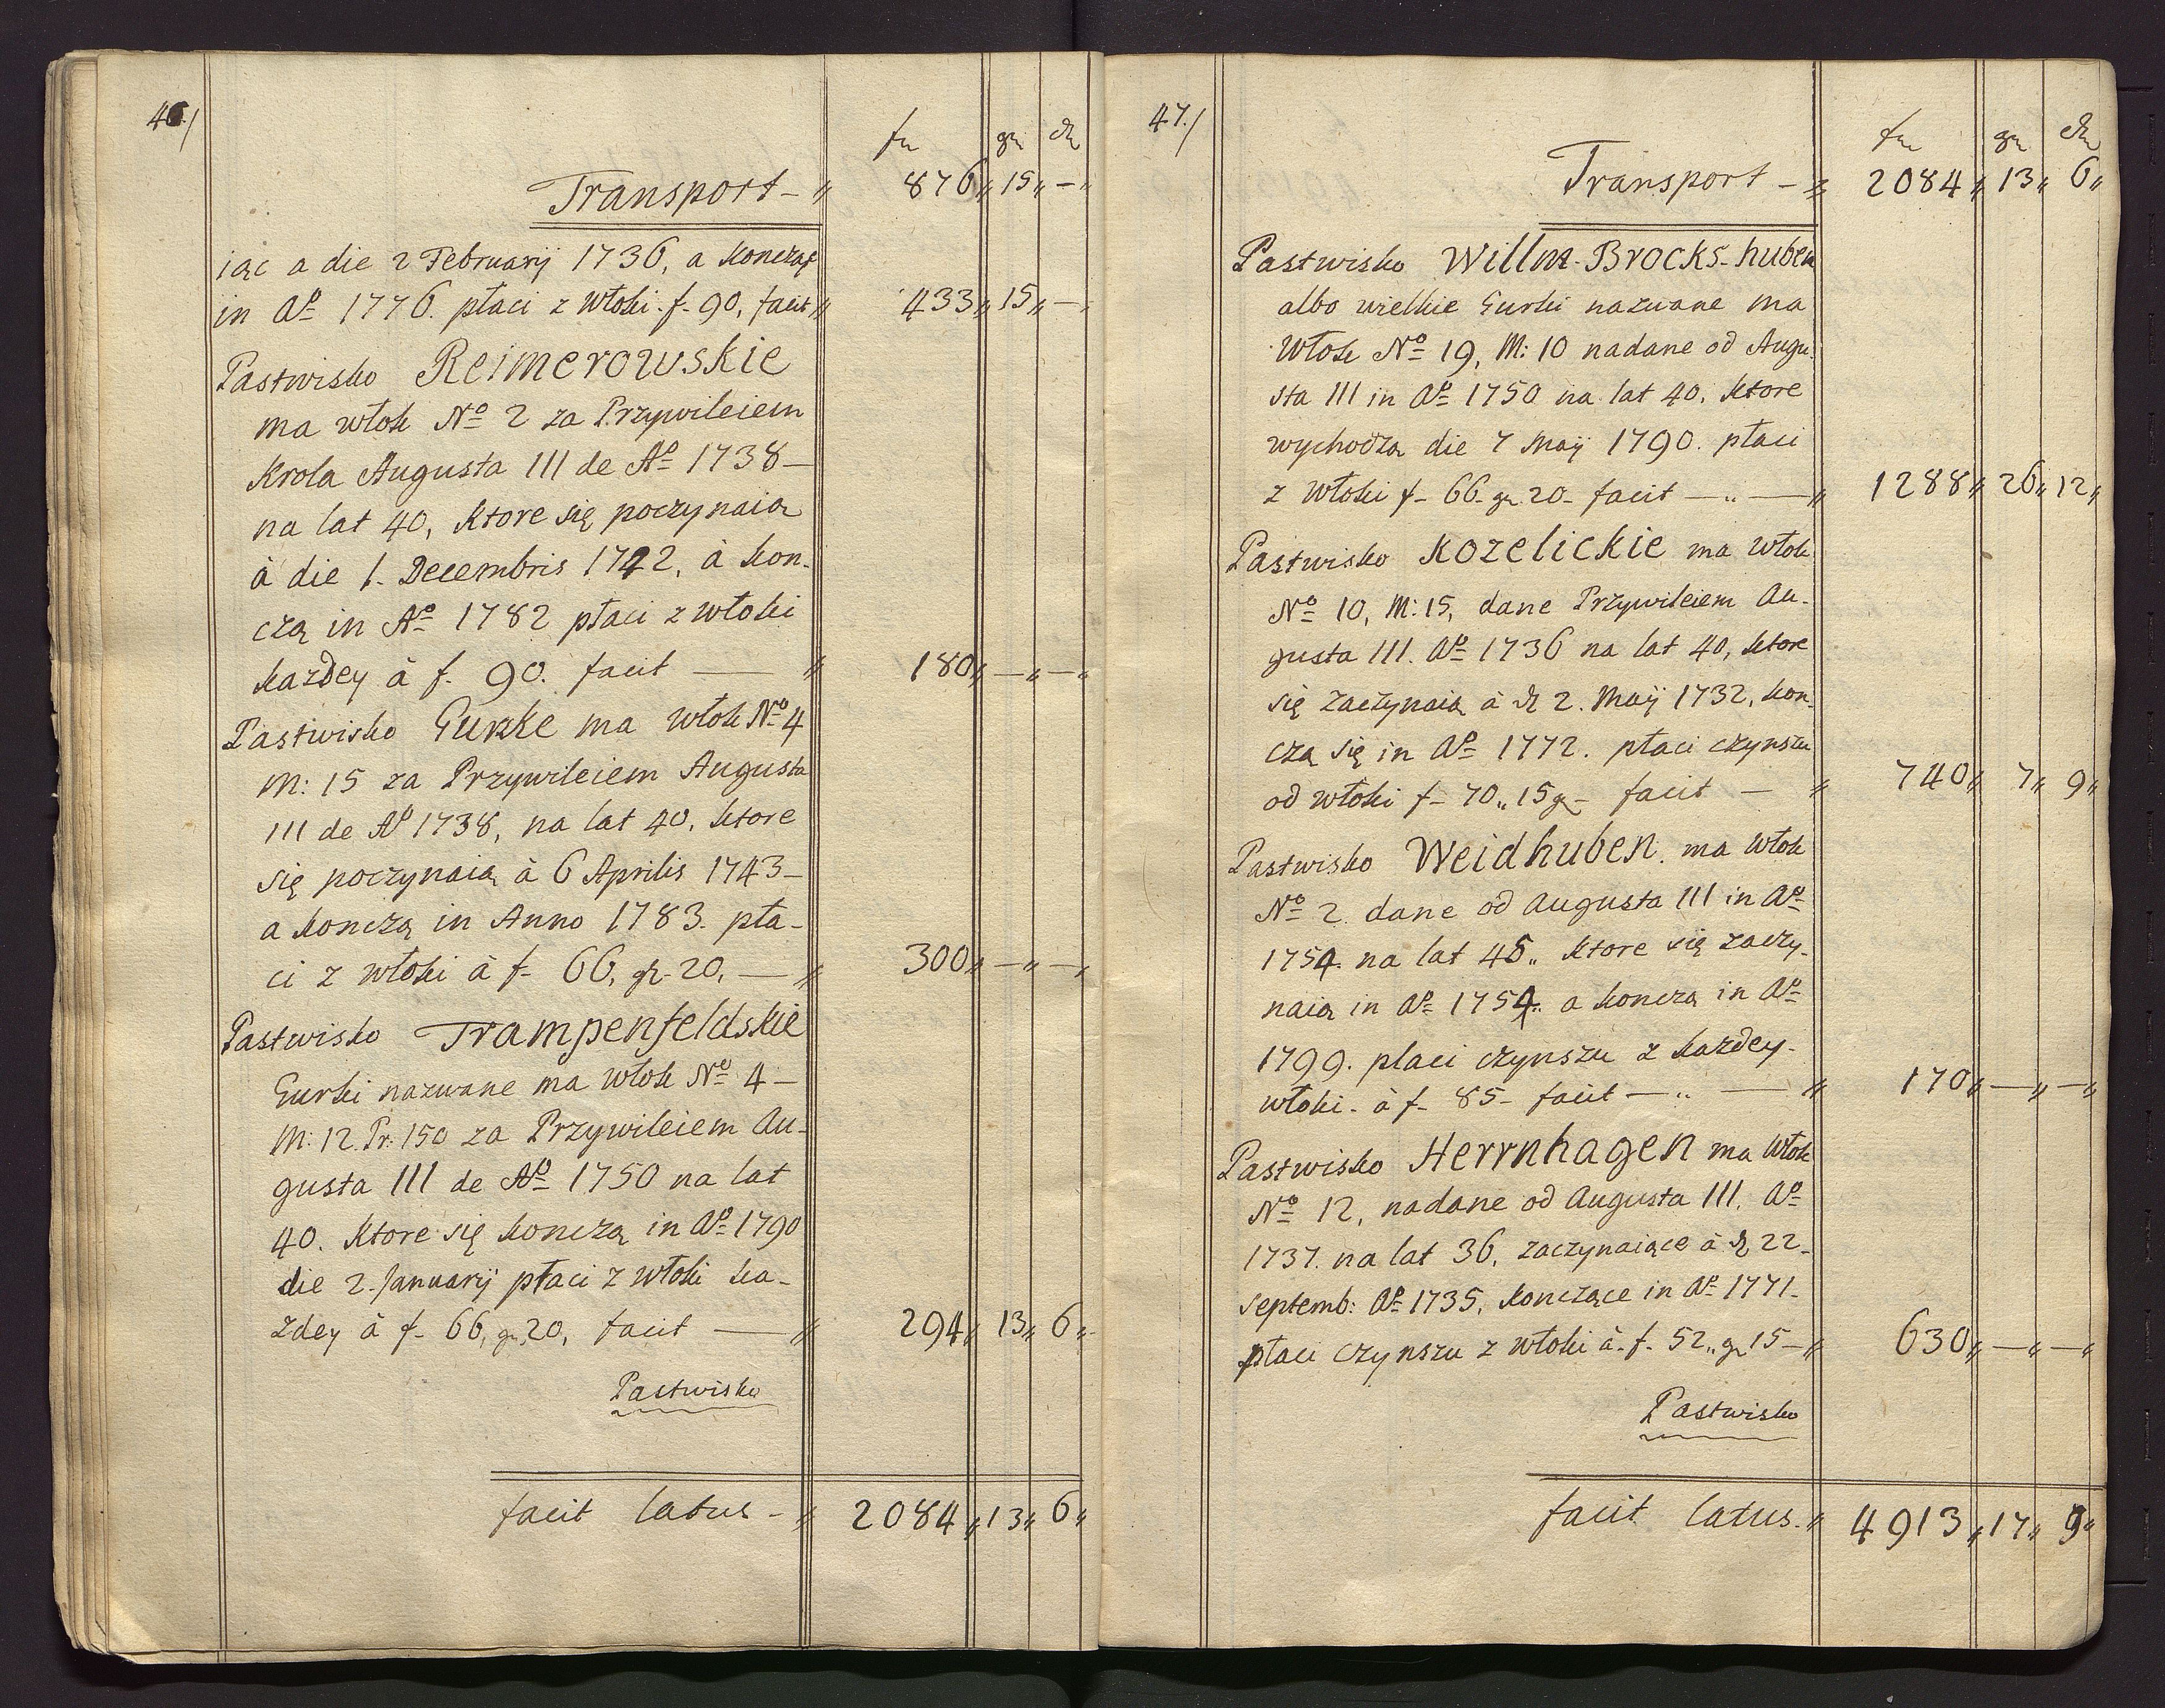 46./
fl gr ₰
Transport - " 876 " 15 " - "
iąc a die 2 Februarij 1736, a koncząc
in Aº 1776. płaci z włoki f. 90, facit " 433 " 15 " - "
Pastwisko Reimerowskie
ma włok Nº 2 za Przywileiem
Krola Augusta III de Aº 1738 -
na lat 40, ktore się poczynaią
à die 1. Decembris 1742, à kon-
czą in Aº 1782 płaci z włoki
każdey à f. 90. facit — " 180 " - " - "
Pastwisko Gurke ma włok Nº 4
M: 15 za Przywileiem Augusta
III de Aº 1738, na lat 40, ktore
się poczynaią à 6 Aprilis 1743 -
a konczą in Anno 1783. pła-
ci z włoki à f. 66, gr. 20, — " 300 " - " - "
Pastwisko Trampenfeldskie
Gurki nazwane ma włok Nº 4 -
M: 12. Pr: 150 za Przywileiem Au-
gusta III de Aº 1750 na lat
40. ktore się konczą in Aº 1790
die 2. Januarij płaci z włoki ka-
zdey à f. 66, gr 20, facit — " 294 " 13 " 6 "
Pastwisko
facit latus - " 2084 " 13 " 6 "
47./
fl gr ₰
Transport - " 2084 " 13 " 6 "
Pastwisko Willm-Brocks-huben
albo wielkie Gurki nazwane ma
włok Nº 19, M: 10 nadane od Augu-
sta III in Aº 1750 na lat 40, ktore
wychodzą die 7 Maij 1790. płaci
z włoki f. 66. gr 20 - facit — " — " 1288 " 26 " 12 "
Pastwisko Kozelickie ma włok
Nº 10, M: 15, dane Przywileiem Au-
gusta III. Aº 1736 na lat 40, ktore
się zaczynaią à ₰ 2. Maij 1732, kon-
czą się in Aº 1772. płaci czynszu
od włoki f. 70 " 15 gr - facit — " 740 " 7 " 9 "
Pastwisko Weidhuben. ma włok
Nº 2. dane od Augusta III in Aº
1754. na lat 45 " ktore się zaczy-
naią in Aº 1754 " a konczą in Aº
1799. placi czynszu z każdey -
włoki - à f. 85 - facit — " — " 170 " - " - "
Pastwisko Herrnhagen ma włok
Nº 12, nadane od Augusta III. Aº
1737. na lat 36, zaczynaiące à ₰ 22 -
Septemb: Aº 1735, konczące in Aº 1771 -
płaci czynszu z włoki à f. 52 " gr 15 - " 630 " - " - "
Pastwisko
facit latus. " 4913 " 17 " 9 "